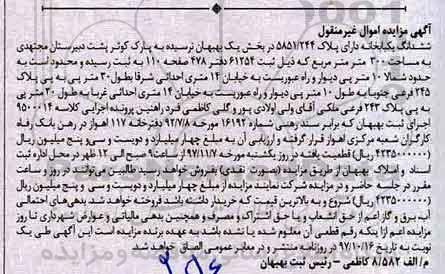 آگهی مزایده اموال غیرمنقول
ششدانگ یکبابخانه دارای پلاک ۵۸۵۱/۲۴۴ در بخش یک بهبهان نرسیده به پارک کوثر پشت دبیرستان مجتهدی
به مساحت ۳۰۰ متر مربع که ذیل ثبت ۶۱۲۵۴ دفتر ۴۷۸ صفحه ۱۱۰ به ثبت رسیده و محدود است به
حدود شمالا ۱۰ متر پی دیوار و راه عبوریست به خیابان ۱۴ متری احداثی شرقا بطول ۳۰ متر پی به پی پلاک
۲۴۵ فرعی جنوبا به طول ۱۰ متر پی دیوار و راه عبوریست به خیابان ۱۴ متری احداثی غربا به طول ۳۰ متر پی
به پی پلاک ۲۴۳ فرعی ملکی آقای ولی اولادی پور و گلی کاظمی فرد راهنین پرونده اجرایی کلاسه ۹۵۰۰۰۱۴
اجرای ثبت بهبهان که برابر سند رهنی شماره ۱۶۱۹۲ مورخه ۹۲/۷/۸ دفترخانه ۱۱۷ اهواز در رهن بانک رفاه
کارگران شعبه مرکزی اهواز قرار گرفته و ارزیابی آن به مبلغ چهار میلیارد و دویست و سی و پنج میلیون ریال
(۴۲۳۵۰۰۰۰۰۰ ریال) قطعیت یافته در روز یکشنبه مورخه ۹۷/۱۱/۷ از ساعت ۹ صبح الی ۱۲ ظهر در محل اداره ثبت
اسناد و املاک بهبهان از طریق مزایده (بصورت نقدی) بفروش خواهد رسید طالبین می‌توانند در روز و ساعت
مقرر در جلسه حاضر و در مزایده شرکت نمایند مزایده از مبلغ چهار میلیارد و دویست و سی و پنج میلیون ریال
(۴۲۳۵۰۰۰۰۰۰ ریال) شروع و به بالاترین قیمت که خریدار داشته باشد فروخته خواهد شد بدهی‌های احتمالی
آب برق و گاز اعم از حق انشعاب و یا حق اشتراک و مصرف و همچنین بدهی مالیاتی و عوارض شهرداری تا روز
مزایده اعم از اینکه رقم قطعی آن معلوم شده یا نشده باشد به عهده برنده مزایده است این آگهی طی یک
نوبت به تاریخ ۹۷/۱۰/۱۶ در روزنامه منتشر و در معابر عمومی الصاق خواهد شد
م / الف ۸/۵۸۲ کاظمی - رئیس ثبت بهبهان